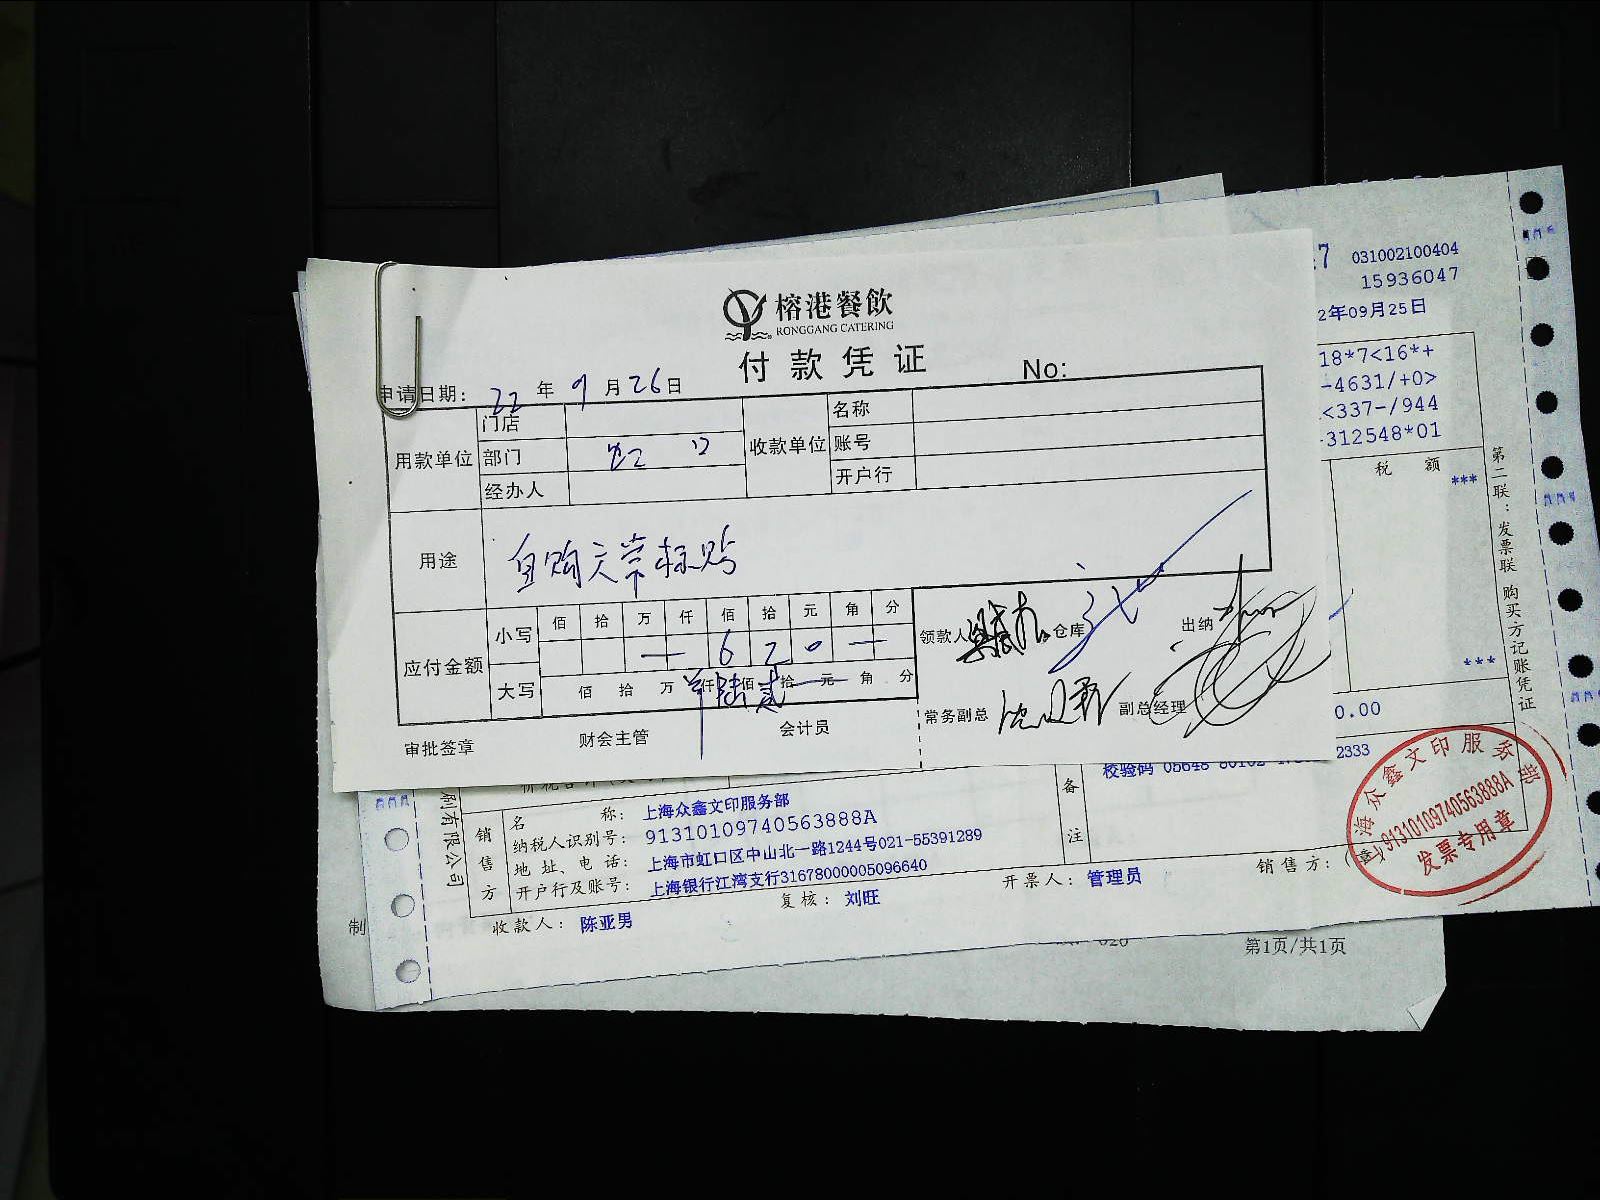 榕港餐飲
RONGGANG CATERING
付款凭证
No:
申请日期: 22 年 9 月 26 日
用款单位 门店
部门
经办人
收款单位 名称
账号
开户行
用途 自购六常标贴
应付金额 小写 佰 拾 万 仟 佰 拾 元 角 分
— 6 2 0 —
大写 佰 拾 万 仟 陆 佰 贰 拾 元 角 分
领款人 仓库 出纳
常务副总 副总经理
审批签章 财会主管 会计员
7 031002100404
15936047
2年09月25日
18*7<16*+
-4631/+0>
<337-/944
-312548*01
税 额
***
***
0.00
2333
第二联:发票联 购买方记账凭证
校验码 05648
销售方
名 称: 上海众鑫文印服务部
纳税人识别号: 91310109740563888A
地 址、电 话: 上海市虹口区中山北一路1244号021-55391289
开户行及账号: 上海银行江湾支行31678000005096640
备注
收款人: 陈亚男 复核: 刘旺 开票人: 管理员 销售方: (章)
上海众鑫文印服务部
91310109740563888A
发票专用章
刷有限公司
制
第1页/共1页